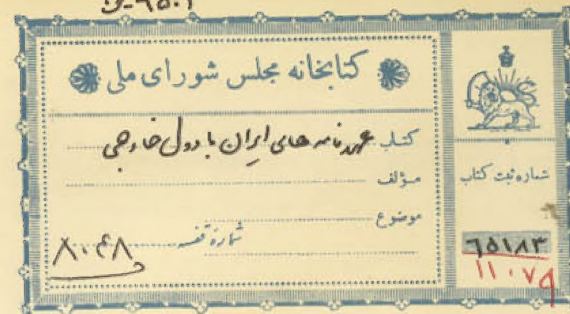 کتابخانه مجلس شورای ملی
کتاب عهدنامه های ایران با دول خارجی
مؤلف
موضوع
شماره قفسه
۸۰۴۸
شماره ثبت کتاب
۶۵۱۸۳
۱۱۰۷۹